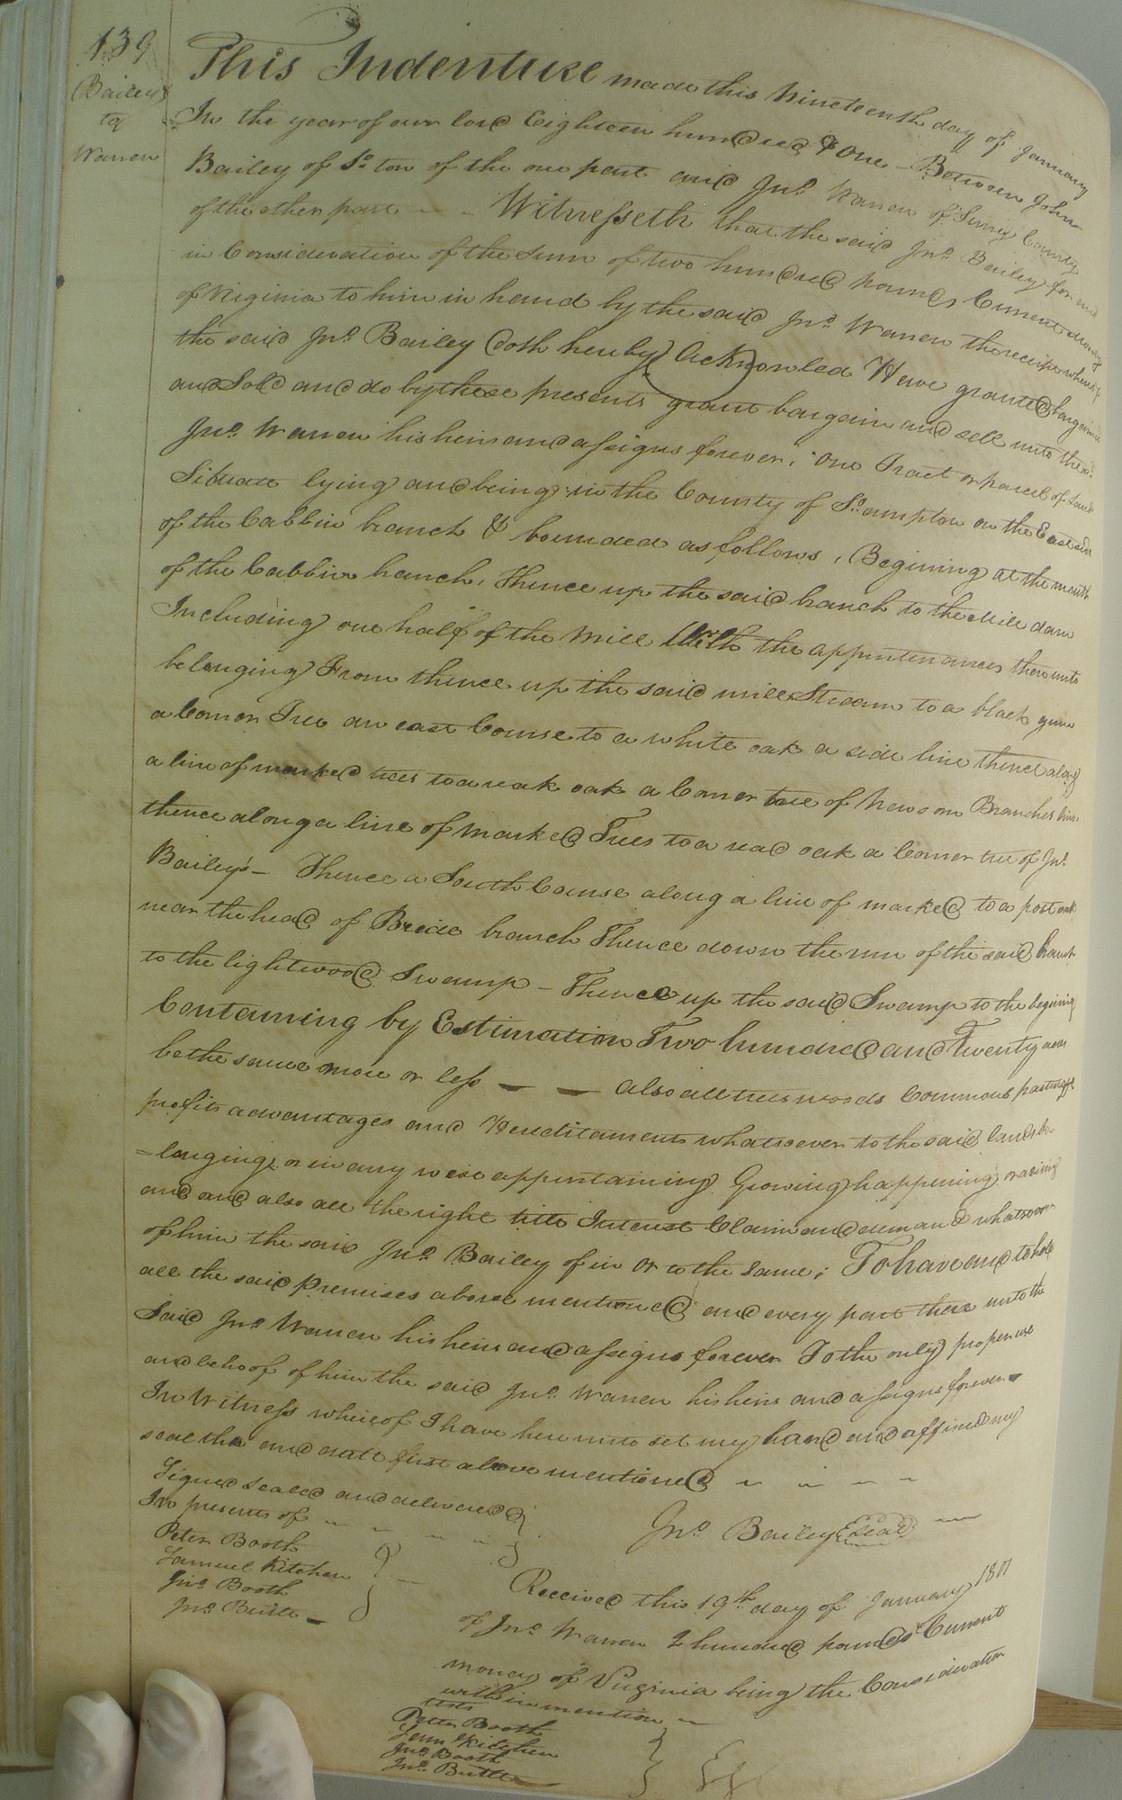 139
Bailey
to
Warren
This Indenture made this Nineteenth day of January
In the year of our lord Eighteen hundred & one - Between John
Bailey of So ton of the one part and Jno. Warren of Surry County
of the other part - - Witnesseth that the said Jno. Bailey for and
in Consideration of the Sum of two hundred pounds Current money
of Virginia to him in hand by the said Jno. Warren the receipt whereof
the said Jno. Bailey doth hereby Acknowled Have granted bargained
and Sold and do by these presents grant bargain and sell unto the sd.
Jno. Warren his heirs and assigns forever, One Tract or parcel of Land
Situate lying and being in the County of So. ampton on the East side
of the Cabbin branch & bounded as follows, Begining at the mouth
of the Cabbin branch, Thence up the said branch to the Mile dam
Including one half of the Mill With the appurtenances thereunto
belonging From thence up the said mill Stream to a black gum
a Corner Tree an east Course to a white oak a side line thence along
a line of marked trees to a reak oak a Corner tree of Newsom Branches line
thence along a line of marked Trees to a read oak a Corner tree of Jno.
Bailey's - Thence a South Course along a line of marked to a post oak
near the head of Breide branch Thence down the run of the said branch
to the lightwood Swamp - Thence up the said Swamp to the begining
Containing by Estimation Two hundred and Twenty acres
be the same more or less - - also all trees woods Commons pasturage
profits advantages and Hereditaments whatsoever to the said lands be-
=longing or in any wise appertaining Growing happening or arising
and and also all the right title Interest Claim and demand whatsoever
of him the said Jno. Bailey of in or to the same; To have and to hold
all the said premises above mentioned and every part there unto the
Said Jno. Warren his heirs and assigns forever To the only proper use
and behoof of him the said Jno. Warren his heirs and assigns forever
In Witness whereof I have hereunto set my hand and affixed my
seal the and date first above mentioned
Signed Sealed and delivered
In presents of
Jno. Bailey Seal
Peter Booth
Samuel Kitchen
Jno. Booth
Jno. Butler
Received this 19th day of January 1801
of Jno. Warren 2 hundred pounds Current
money of Virginia being the Consideration
within mention
tests
Peter Booth
Sam Kitchen
Jno. Booth
Jno. Butler